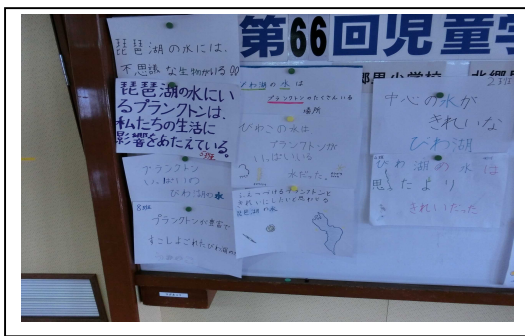 第66回児童学
琵琶湖の水には、
不思議な生物がいる
琵琶湖の水にい
るプランクトンは、
私たちの生活に
影響をあたえている。
5班
プランクトン
いっぱいの
びわ湖の水
8班
プランクトンが豊富で
すこしよごれたびわ湖の
びわ湖の水は
プランクトンのたくさんいる
場所
びわこの水は
プランクトンが
いっぱいいる
水だった。
3
きれいにしたいと思わせる
琵琶湖の水
2班
中心の水が
きれいな
びわ湖
びわ湖の水は
思ったより
きれいだった